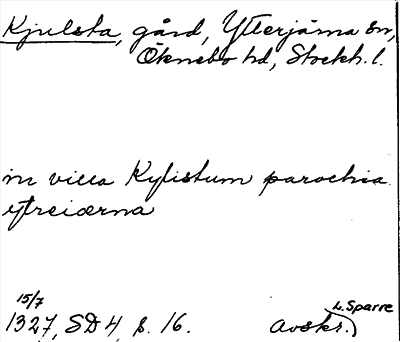 Kjulsta, gård, Ytterjärna sn,
Öknebo hd, Stockh. l.
in villa Kylistum parochia
ytreiærna
15/7
1327, SD 4, s. 16.
L. Sparre
Avskr.)